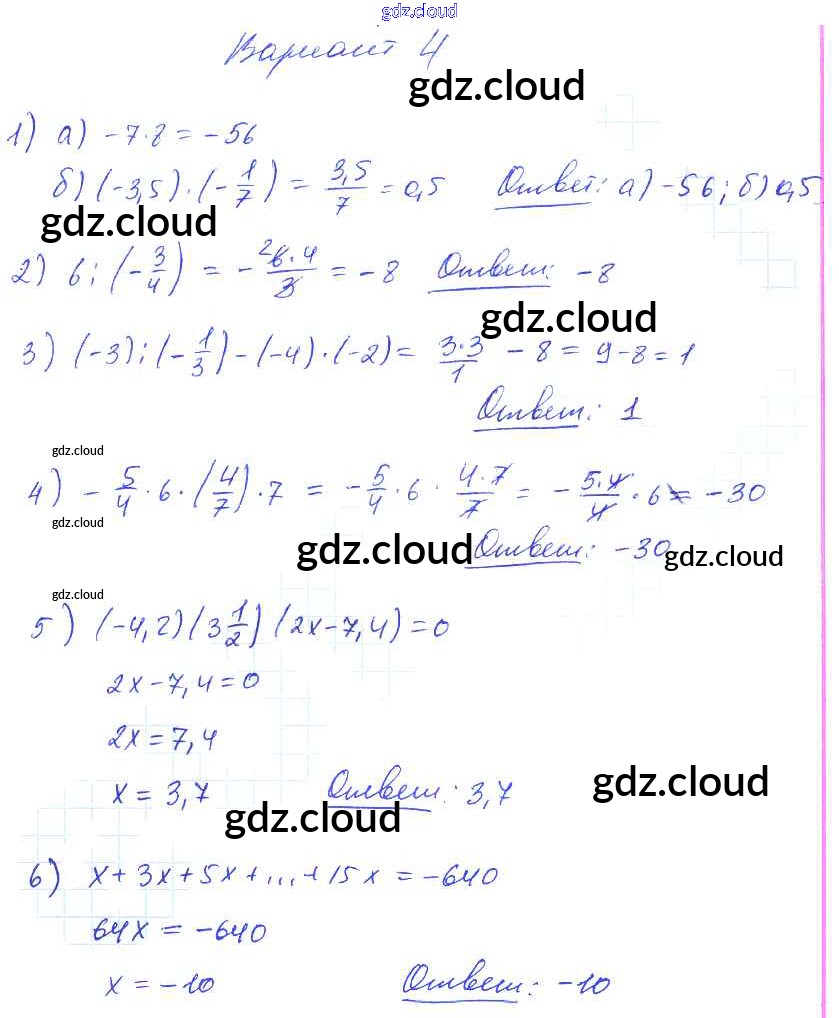 gdz.cloud
Вариант 4
gdz.cloud
1) а) -7·8 = -56
б) (-3,5)·(-1/7) = 3,5/7 = 0,5 Ответ: а) -56; б) 0,5
gdz.cloud
2) 6 : (-3/4) = - 2 6·4/3 = -8 Ответ: -8
gdz.cloud
3) (-3) : (-1/3) - (-4)·(-2) = 3·3/1 - 8 = 9-8 = 1
Ответ: 1
gdz.cloud
4) - 5/4 · 6 · (4/7) · 7 = - 5/4 · 6 · 4·7/7 = - 5·4/4 · 6 = -30
gdz.cloud
gdz.cloud Ответ: -30 gdz.cloud
gdz.cloud
5) (-4,2)(3 1/2)(2x-7,4) = 0
2x-7,4=0
2x=7,4
x = 3,7 Ответ: 3,7 gdz.cloud
gdz.cloud
6) x+3x+5x+...+15x = -640
64x = -640
x = -10 Ответ: -10